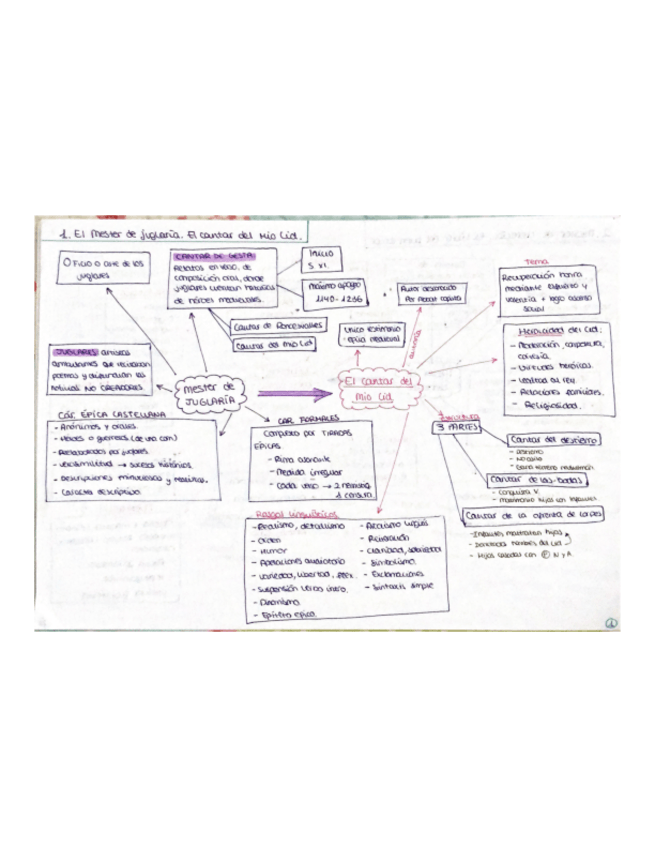 1. El Mester de Juglaría. El Cantar del Mio Cid.
Oficio o arte de los
juglares
CANTAR DE GESTA
Relatos en verso, de
composición oral, donde
juglares cuentan historias
de héroes medievales.
Inicio
S. VI.
Máximo apogeo
1140-1236
Cantar de Roncesvalles
Cantar del Mio Cid
JUGLARES artistas
ambulantes que recitaban
poemas y difundían las
noticias. NO CREADORES.
Mester de
JUGLARÍA
CAR. ÉPICA CASTELLANA
- Anónimos y orales.
- Héroes o guerreros
- Recitados por juglares.
- Verosimilitud → sucesos históricos.
- Descripciones minuciosas y
- Carácter descriptivo.
CAR. FORMALES
Compuesto por TIRADAS
ÉPICAS
- Rima asonante
- Medida irregular
- Cada verso → 2
1 cesura
El Cantar del
Mio Cid
Único testimonio
épica medieval
autoría
Autor desconocido
Per Abbat copista
Tema
Recuperación honra
mediante esfuerzo y
valentía + logro ascenso
social
Heroicidad del Cid:
- Moderación,
cortesía
- Virtudes heroicas.
- Lealtad al rey.
- Relaciones familiares.
- Religiosidad.
Estructura
3 PARTES
Cantar del destierro
- Destierro
- No
- Gana terreno musulmán
Cantar de las bodas
- Conquista V.
- Matrimonio hijas con infantes
Cantar de la afrenta de Corpes
- Infantes maltratan hijas
- Deshonra hombres del Cid
- Hijas casadas con N y A.
Rasgos lingüísticos
- Realismo, detallismo
- Orden
- Humor
- Apelaciones auditorio
- Variedad, libertad,
- Suspensión verbos intro.
- Dinamismo
- Epíteto épico.
- Arcaísmo lingual
- Reiteración
- Claridad, sobriedad
- Simbolismo.
- Exclamaciones
- Sintaxis simple
1